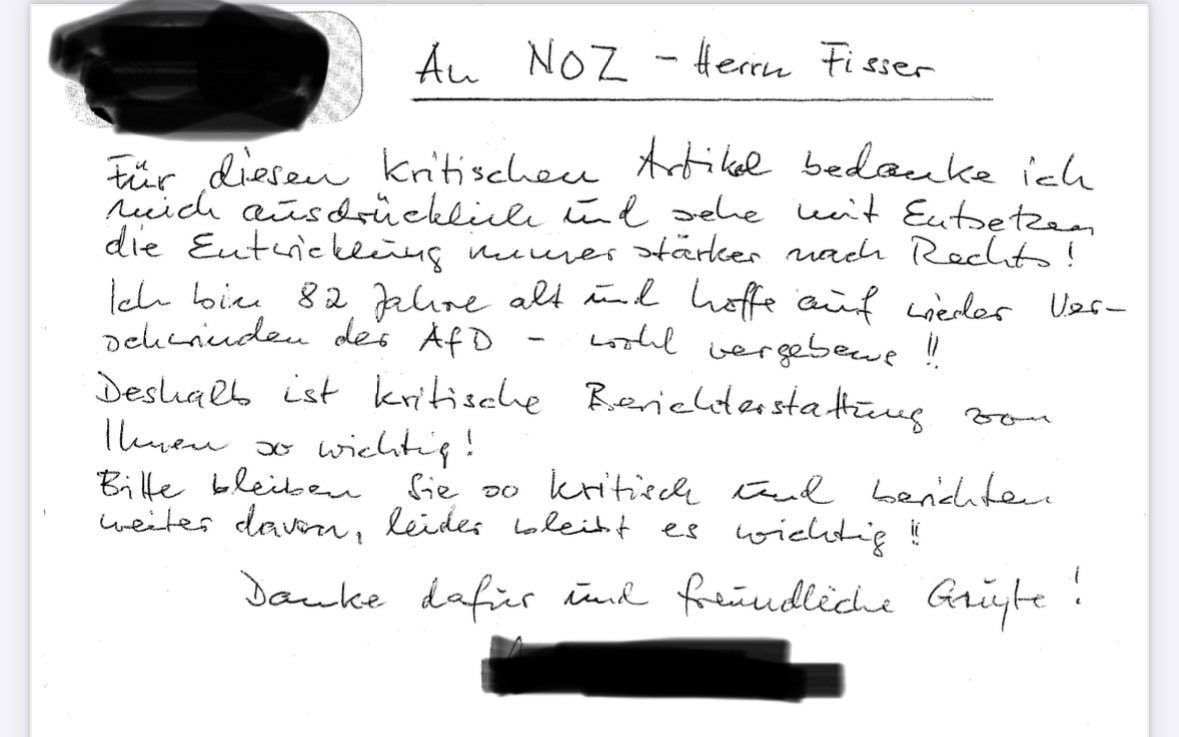 An NOZ - Herrn Fisser
Für diesen kritischen Artikel bedanke ich
mich ausdrücklich und sehe mit Entsetzen
die Entwicklung immer stärker nach Rechts!
Ich bin 82 Jahre alt und hoffe auf wieder Ver-
schwinden der AfD - wohl vergebens!!
Deshalb ist kritische Berichterstattung von
Ihnen so wichtig!
Bitte bleiben Sie so kritisch und berichten
weiter davon, leider bleibt es wichtig!!
Danke dafür und freundliche Grüße!